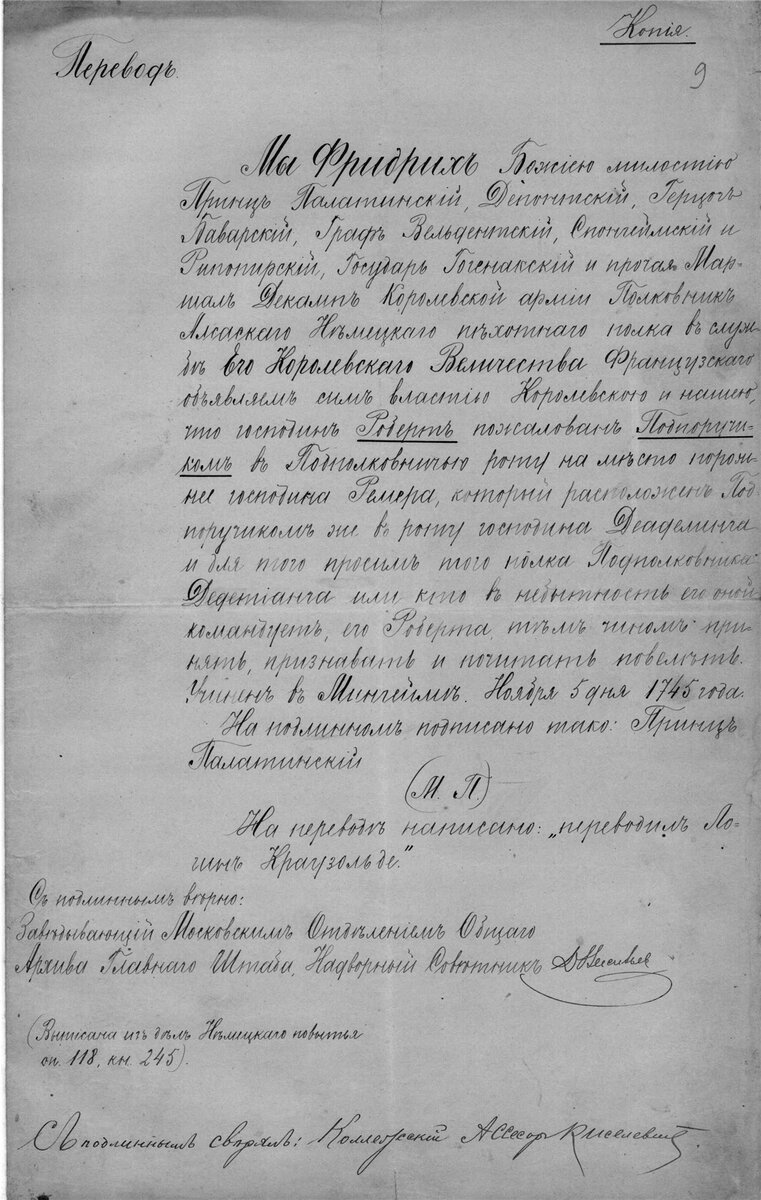 Копія.
Переводъ.
9
Мы Фридрихъ Божіею милостію
Принцъ Палатинскій, Депонтскій, Герцогъ
Баварскій, Графъ Вельдентскій, Спонгеймскій и
Рипопирскій, Государь Гогенакскій и прочая Мар-
шалъ Декампъ Королевской арміи Полковникъ
Алсаскаго Нѣмецкаго пѣхотнаго полка въ служ-
бѣ Его Королевскаго Величества Французскаго
объявляемъ симъ властію Королевскою и нашею,
что господинъ Робертъ пожалованъ Подпоручи-
комъ въ Подполковничью роту на мѣсто порож-
нее господина Ремера, который расположенъ Под-
поручикомъ же въ роту господина Деаделинга
и для того просимъ того полка Подполковника
Дедетіанга или кто въ небытность его оной
командуетъ, его Роберта, тѣмъ чиномъ при-
нять, признавать и почитать повелѣть.
Учиненъ въ Мингеймѣ. Ноября 5 дня 1745 года.
На подлинномъ подписано тако: Принцъ
Палатинскій
(М. П.)
На переводѣ написано: „переводилъ Ло-
гинъ Краузольде.“
Съ подлиннымъ вѣрно:
Завѣдывающій Московскимъ Отдѣленіемъ Общаго
Архива Главнаго Штаба, Надворный Совѣтникъ
(Выписана изъ дѣлъ Нѣмецкаго повытья
оп. 118, кн. 245).
Съ подлиннымъ свѣрялъ: Коллежскій Ассесоръ